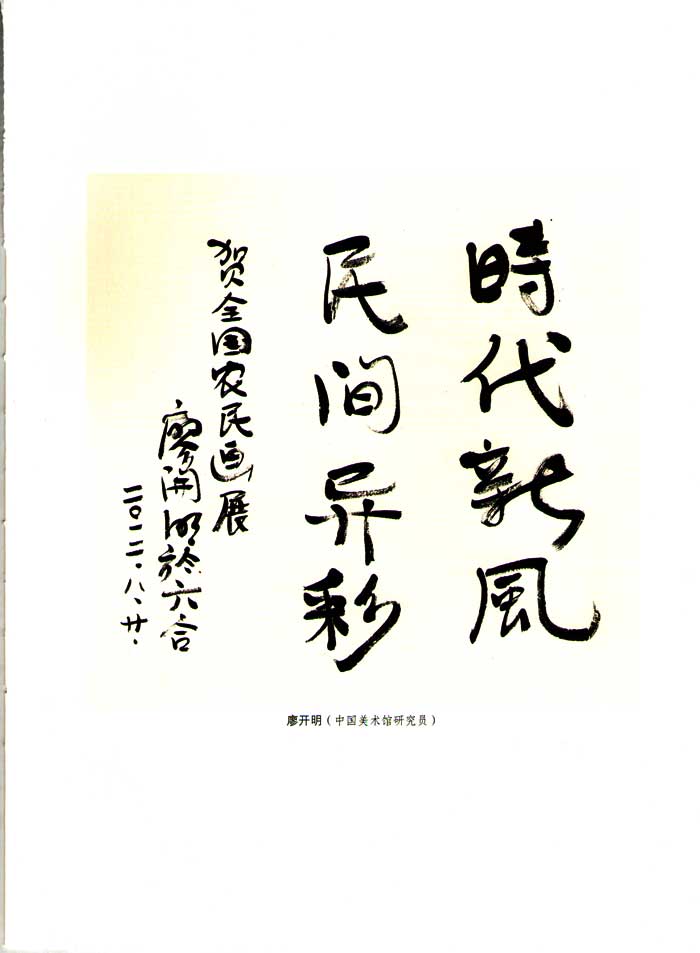 時代新風
民间异彩
贺全国农民画展
廖開明於六合
二〇一二.八、廿.
廖开明（中国美术馆研究员）